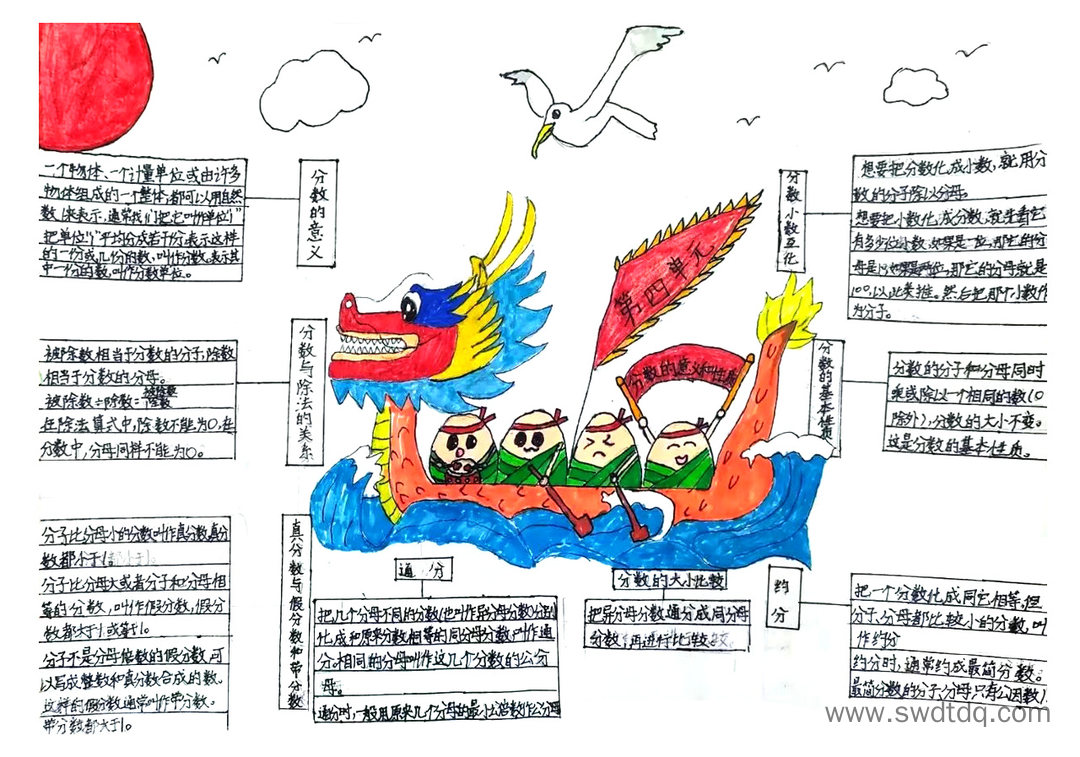 分数的意义
一个物体、一个计量单位或由许多
物体组成的一个整体,都可以用自然
数1来表示,通常我们把它叫作单位"1"
把单位"1"平均分成若干份,表示这样
的一份或几份的数,叫作分数。表示其
中一份的数,叫作分数单位。
分数与除法的关系
被除数相当于分数的分子,除数
相当于分数的分母。
被除数÷除数=被除数/除数
在除法算式中,除数不能为0,在
分数中,分母同样不能为0。
真分数与假分数和带分数
分子比分母小的分数叫作真分数,真分
数都小于1。
分子比分母大或者分子和分母相
等的分数,叫作假分数,假分
数都大于1或等于1。
分子不是分母倍数的假分数,可
以写成整数和真分数合成的数。
这样的假分数通常叫作带分数。
带分数都大于1。
第四单元
分数的意义和性质
通分
把几个分母不同的分数(也叫作异分母分数)分别
化成和原来分数相等的同分母分数,叫作通
分。相同的分母叫作这几个分数的公分
母。
通分时,一般用原来几个分母的最小公倍数作公分母
分数的大小比较
把异分母分数通分成同分母
分数,再进行比较
分数小数互化
想要把分数化成小数,就用分
数的分子除以分母。
想要把小数化成分数,就先看它
有多少位小数,如果是一位,那它的分
母是10,如果是两位,那它的分母就是
100,以此类推。然后把那个小数作
为分子。
分数的基本性质
分数的分子和分母同时
乘或除以一个相同的数(0
除外),分数的大小不变。
这是分数的基本性质。
约分
把一个分数化成同它相等,但
分子、分母都比较小的分数,叫
作约分
约分时,通常约成最简分数。
最简分数的分子、分母只有公因数1
www.swdtdq.com